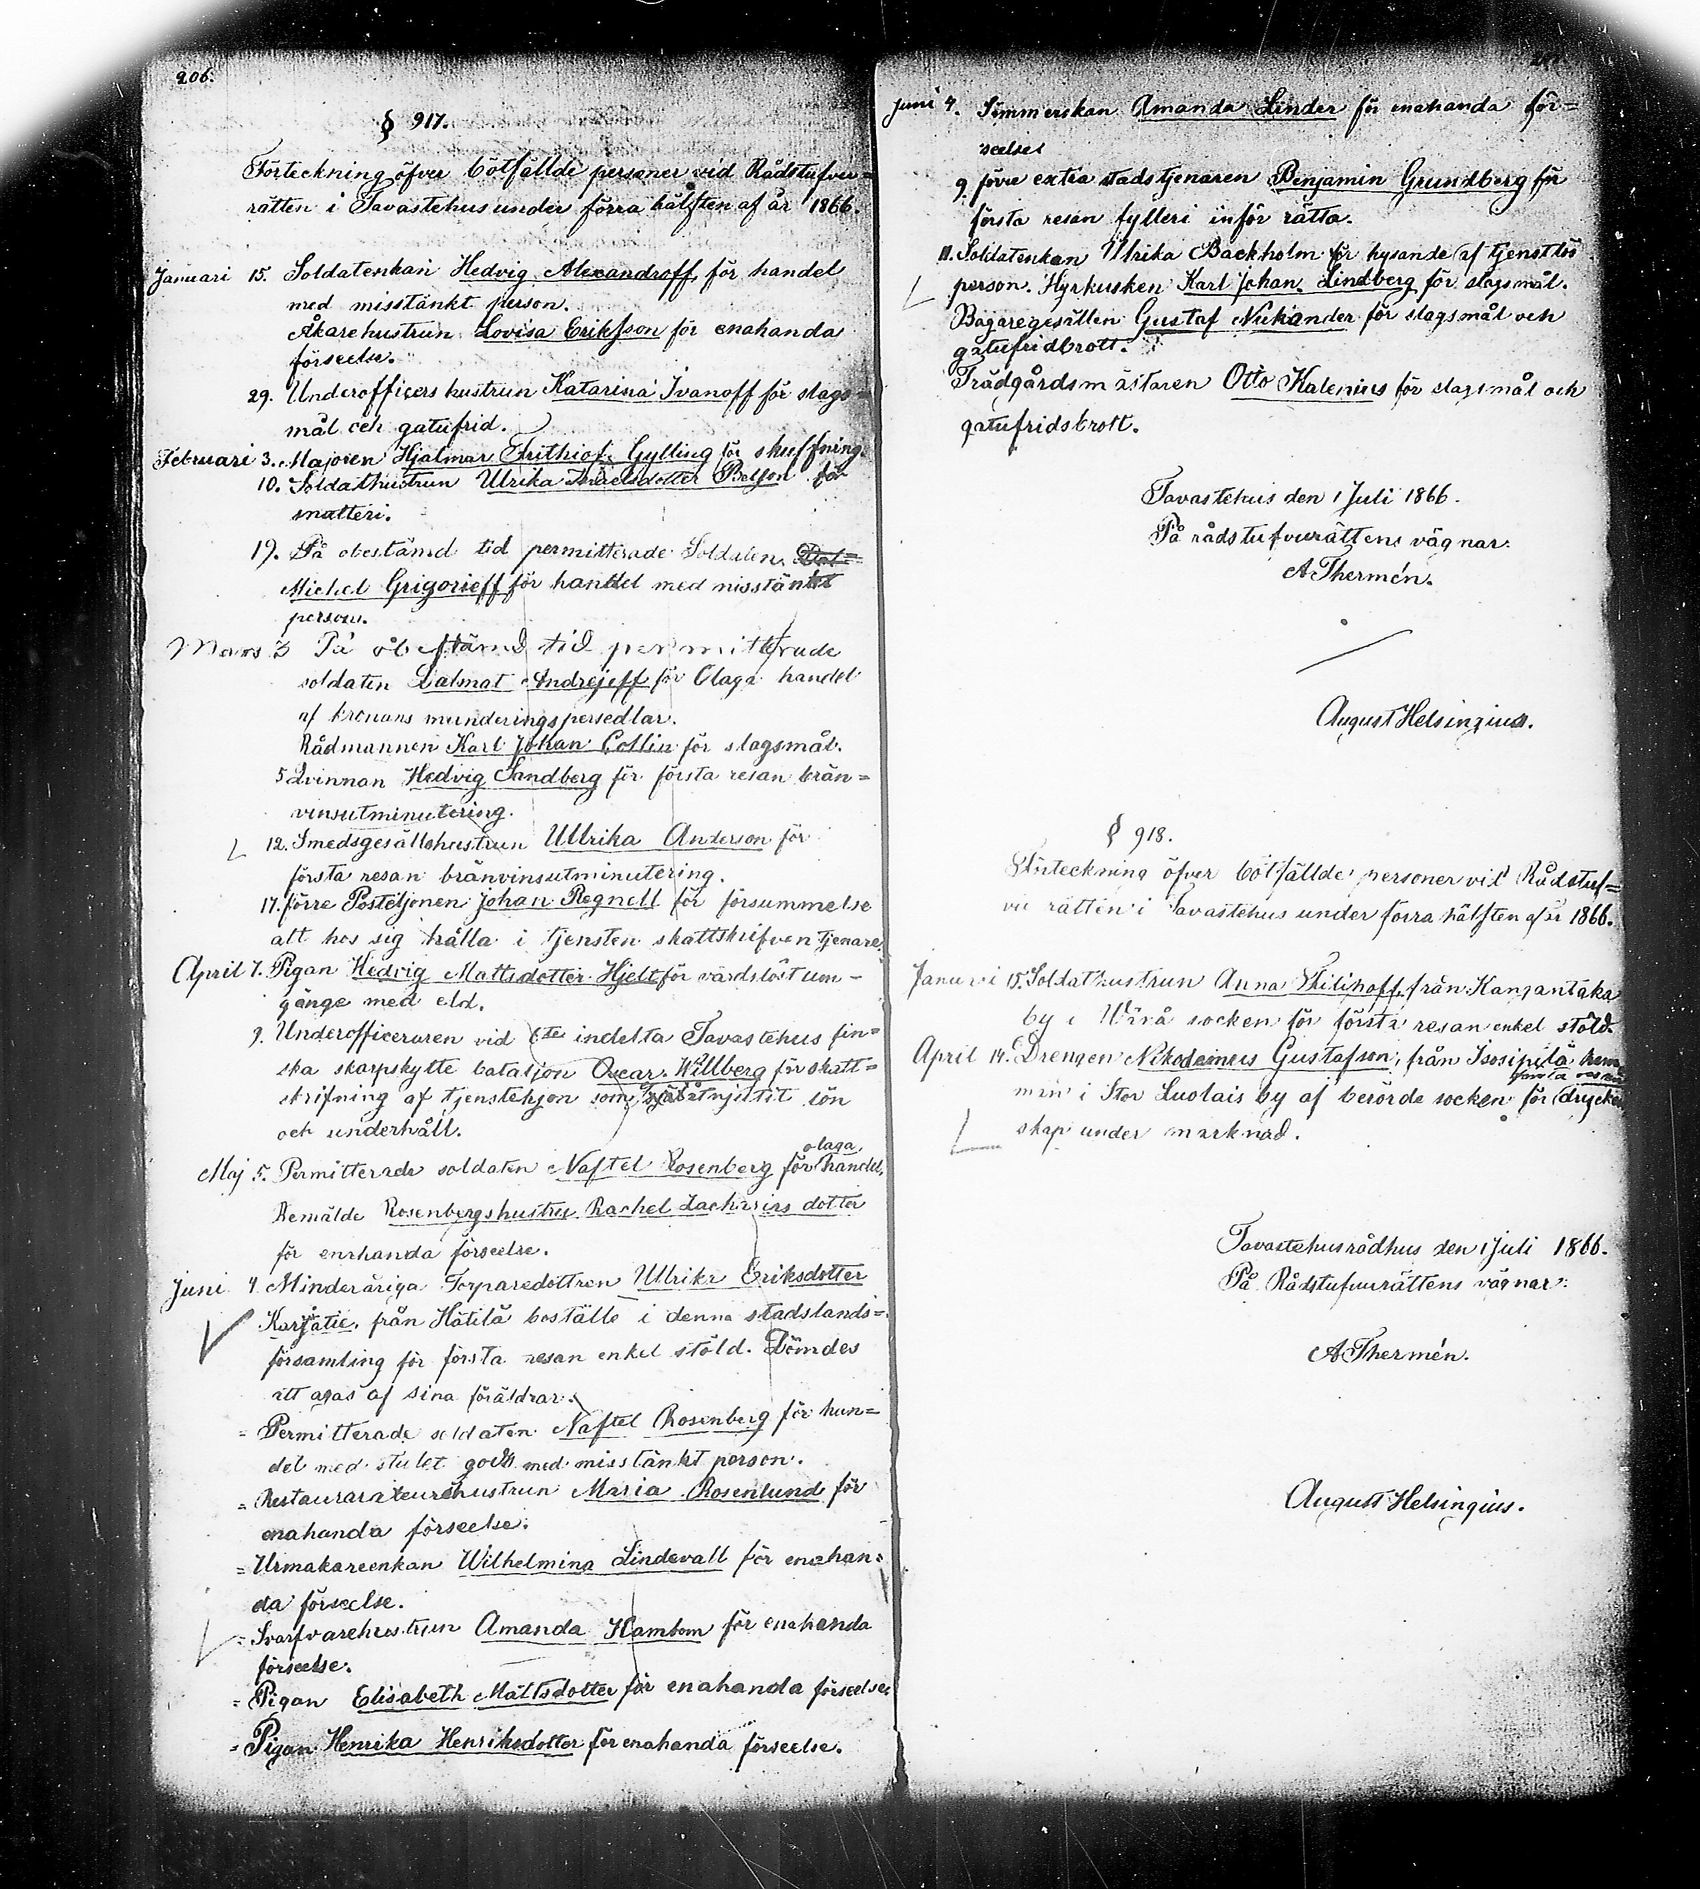 206.
§ 917.
Förteckning öfver bötfällde personer vid Rådstufvu=
rätten i Tavastehus under förra hälften af år 1866.
Januari 15. Soldatenkan Hedvig Alexandroff, för handel
med misstänkt person.
Åkarehustrun Lovisa Eriksson för enahanda
förseelse.
29. Underofficers hustrun Katarina Ivanoff för slags=
mål och gatufrid.
Februari 3. Majoren Hjalmar Frithiof Gylling för skuffning.
10. Soldathustrun Ulrika Israelsdotter Belson för
snatteri.
19. På obestämd tid permitterade Soldaten Dal=
Michel Grigorieff för handel med misstänkt
person.
Mars 3 På obestämd tid permitterade
soldaten Dalmat Andrejeff för Olaga handel
af kronans munderingspersedlar.
Rådmannen Karl Johan Collin för slagsmål.
5 Qvinnan Hedvig Sandberg för första resan brän=
vinsutminutering.
12. Smedsgesällshustrun Ullrika Anderson för
första resan bränvinsutminutering.
17. förre Posteljonen Johan Regnell för försummelse
att hos sig hålla i tjensten skattskrifven tjenare.
April 7. Pigan Hedvig Mattsdotter Hjelt för vårdslöst um-
gänge med eld.
9. Underofficeraren vid 6te indelta Tavastehus fin=
ska skarpskytte bataljon Oscar Willberg för skatt=
skrifning af tjenstehjon som ej åtnjutit lön
och underhåll.
Maj 5. Permitterade soldaten Naftel Rosenberg för olaga handel.
Bemälde Rosenbergs hustru Rachel Zacharias dotter
för enahanda förseelse.
Juni 4 Minderåriga Torparedottren Ullrika Eriksdotter
Karjatie, från Hätilä boställe i denna stadslands=
församling för första resan enkel stöld. Dömdes
att agas af sina föräldrar.
= Permitterade soldaten Naftel Rosenberg för han=
del med stulet gods med misstänkt person.
= Restaurateurshustrun Maria Rosenlund för
enahanda förseelse.
= Urmakareenkan Wilhelmina Lindevall för enahan=
da förseelse.
= Svarfvarehustrun Amanda Hambom för enahanda
förseelse.
= Pigan Elisabeth Mattsdotter för enahanda förseelse.
= Pigan Henrika Henriksdotter för enahanda förseelse.
Juni 4. Sömmerskan Amanda Linder för enahanda för=
seelse
9. förre extra stadstjenaren Benjamin Grundberg för
första resan fylleri inför rätta.
11. Soldatenkan Ulrika Backholm för hysande af tjenstlös
person. Hyrkusken Karl Johan Lindberg för slagsmål.
Bagaregesällen Gustaf Nukander för slagsmål och
gatufridbrott.
Trädgårdsmästaren Otto Kalenius för slagsmål och
gatufridsbrott.
Tavastehus den 1 Juli 1866.
På rådstufvurättens vägnar.
A Thermén.
August Helsingius.
§ 918.
Förteckning öfver bötfällde personer vid Rådstuf=
vu rätten i Tavastehus under förra hälften af år 1866.
Januari 15. Soldathustrun Anna Filihoff, från Kangantaka
by i Wånå socken för första resan enkel stöld.
April 14. Drengen Nikodemus Gustafson, från Isosipilä hem
första resan
man i Stor Luolais by af berörde socken för drycken
skap under marknad.
Tavastehus rådhus den 1 Juli 1866.
På Rådstufvurättens vägnar:
A Thermén.
August Helsingius.